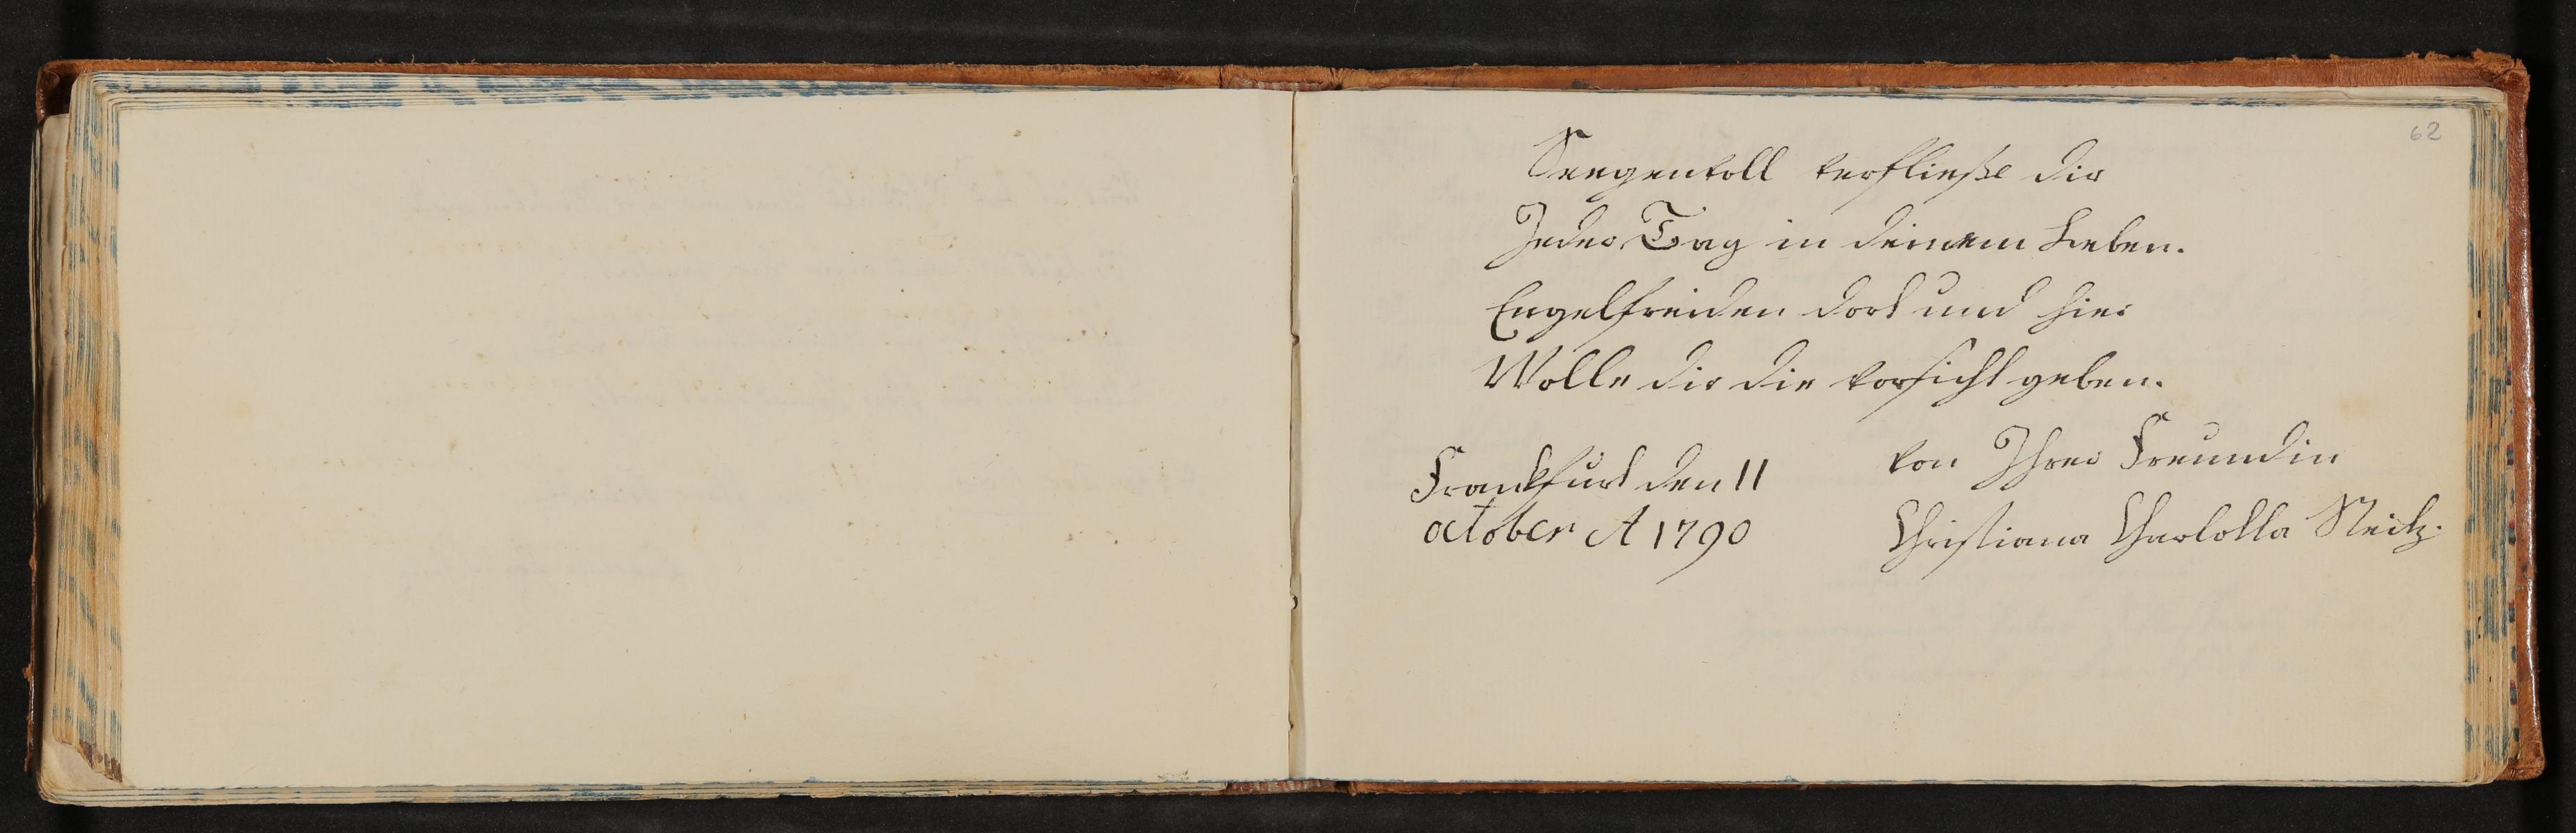 62
Seegenvoll verfließe dir
Jeder Tag in deinem Leben.
Engelfreiden dort und hier
Wolle dir die vorsicht geben.
Frankfurt den 11
october A 1790
von Ihrer Freundin
Christiana Charlotta Steitz.